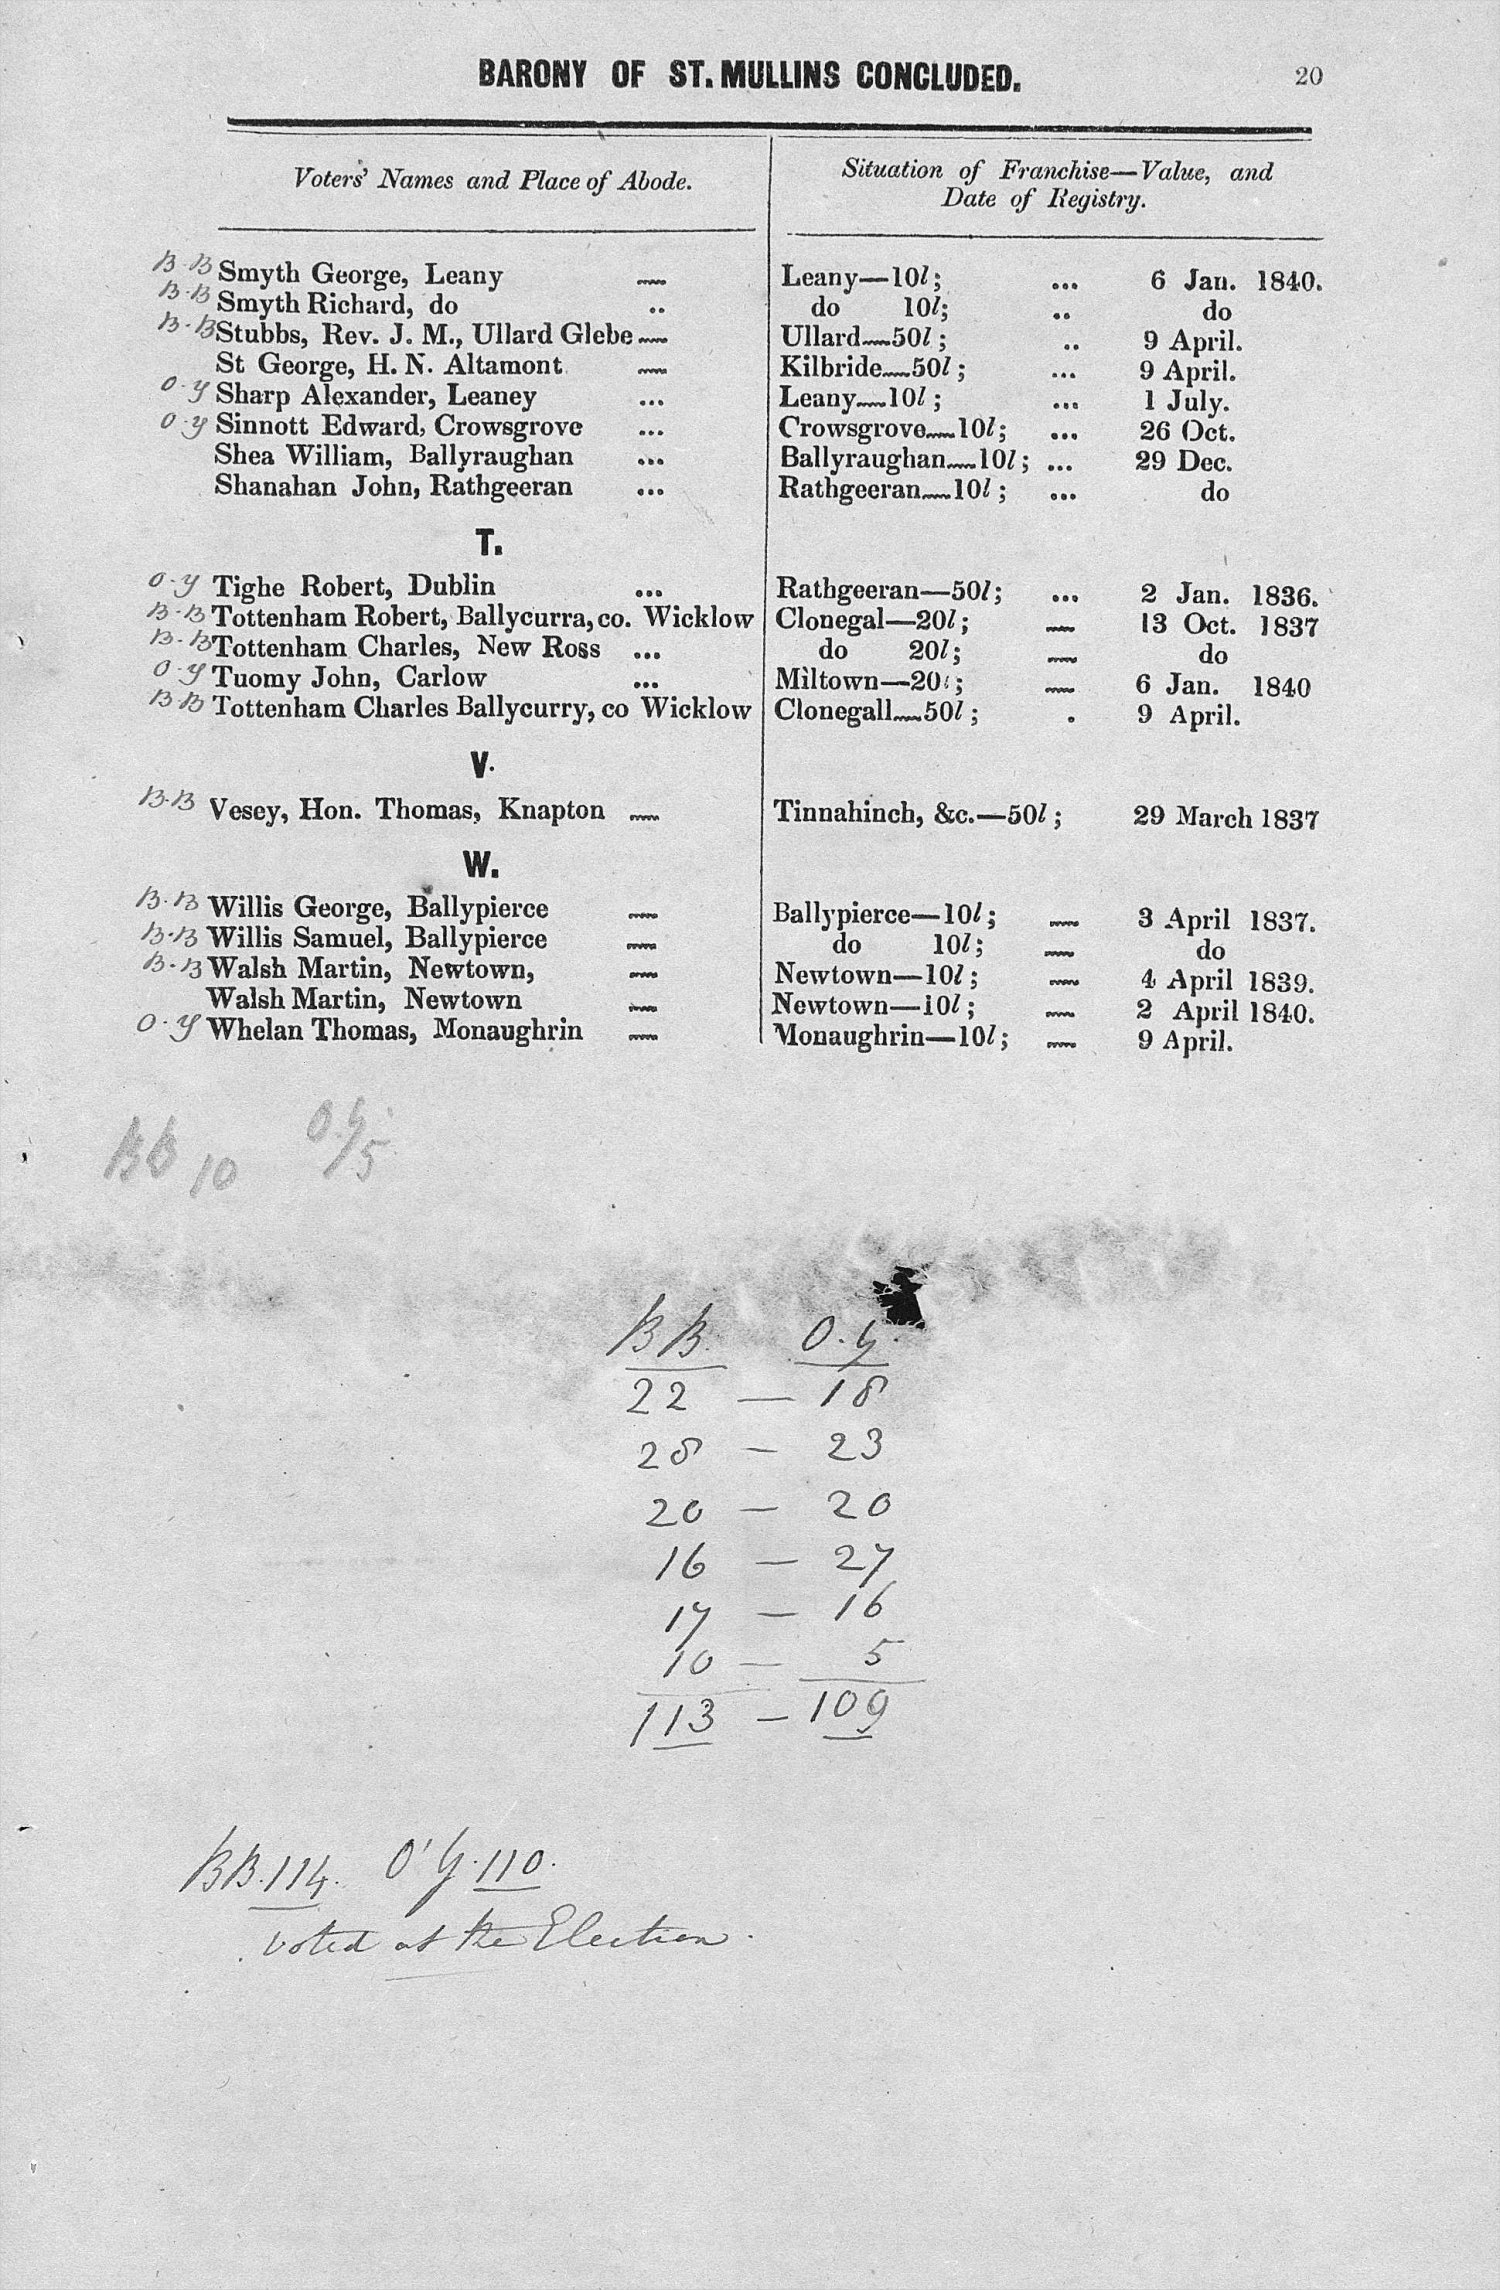 BARONY OF ST. MULLINS CONCLUDED. 20
Voters' Names and Place of Abode.
Situation of Franchise—Value, and
Date of Registry.
B-B Smyth George, Leany Leany—10l; ... 6 Jan. 1840.
B-B Smyth Richard, do .. do 10l; .. do
B-B Stubbs, Rev. J. M., Ullard Glebe Ullard—50l; .. 9 April.
St George, H. N. Altamont Kilbride—50l; ... 9 April.
O-y Sharp Alexander, Leaney ... Leany—10l; ... 1 July.
O-y Sinnott Edward, Crowsgrove ... Crowsgrove—10l; ... 26 Oct.
Shea William, Ballyraughan ... Ballyraughan—10l; ... 29 Dec.
Shanahan John, Rathgeeran ... Rathgeeran—10l; ... do
T.
O-y Tighe Robert, Dublin ... Rathgeeran—50l; ... 2 Jan. 1836.
B-B Tottenham Robert, Ballycurra, co. Wicklow Clonegal—20l; 13 Oct. 1837
B-B Tottenham Charles, New Ross ... do 20l; do
O-y Tuomy John, Carlow ... Miltown—20l; 6 Jan. 1840
B-B Tottenham Charles Ballycurry, co Wicklow Clonegall—50l; . 9 April.
V.
B-B Vesey, Hon. Thomas, Knapton Tinnahinch, &c.—50l; 29 March 1837
W.
B-B Willis George, Ballypierce Ballypierce—10l; 3 April 1837.
B-B Willis Samuel, Ballypierce do 10l; do
B-B Walsh Martin, Newtown, Newtown—10l; 4 April 1839.
Walsh Martin, Newtown Newtown—10l; 2 April 1840.
O-y Whelan Thomas, Monaughrin Monaughrin—10l; 9 April.
BB 10 O.y 5
BB. O.y.
22 — 18
28 — 23
20 — 20
16 — 27
17 — 16
10 — 5
113 — 109
BB. 114. O'y. 110.
voted at the Election.